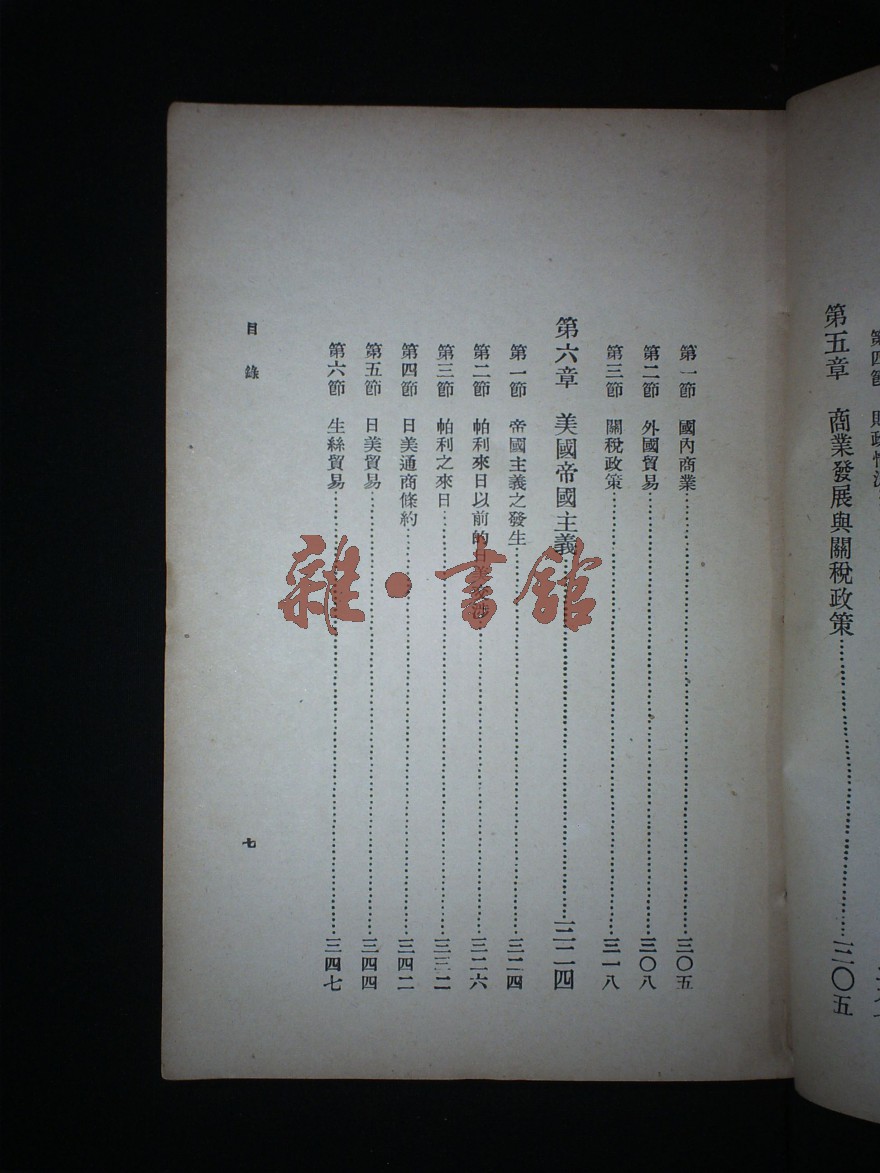 第四節
第五章 商業發展與關稅政策……三〇五
第一節 國內商業……三〇五
第二節 外國貿易……三〇八
第三節 關稅政策……三一八
第六章 美國帝國主義……三二四
第一節 帝國主義之發生……三二四
第二節 帕利來日以前的日美交涉……三二六
第三節 帕利之來日……三三二
第四節 日美通商條約……三四二
第五節 日美貿易……三四四
第六節 生絲貿易……三四七
目錄
七
雜·書館